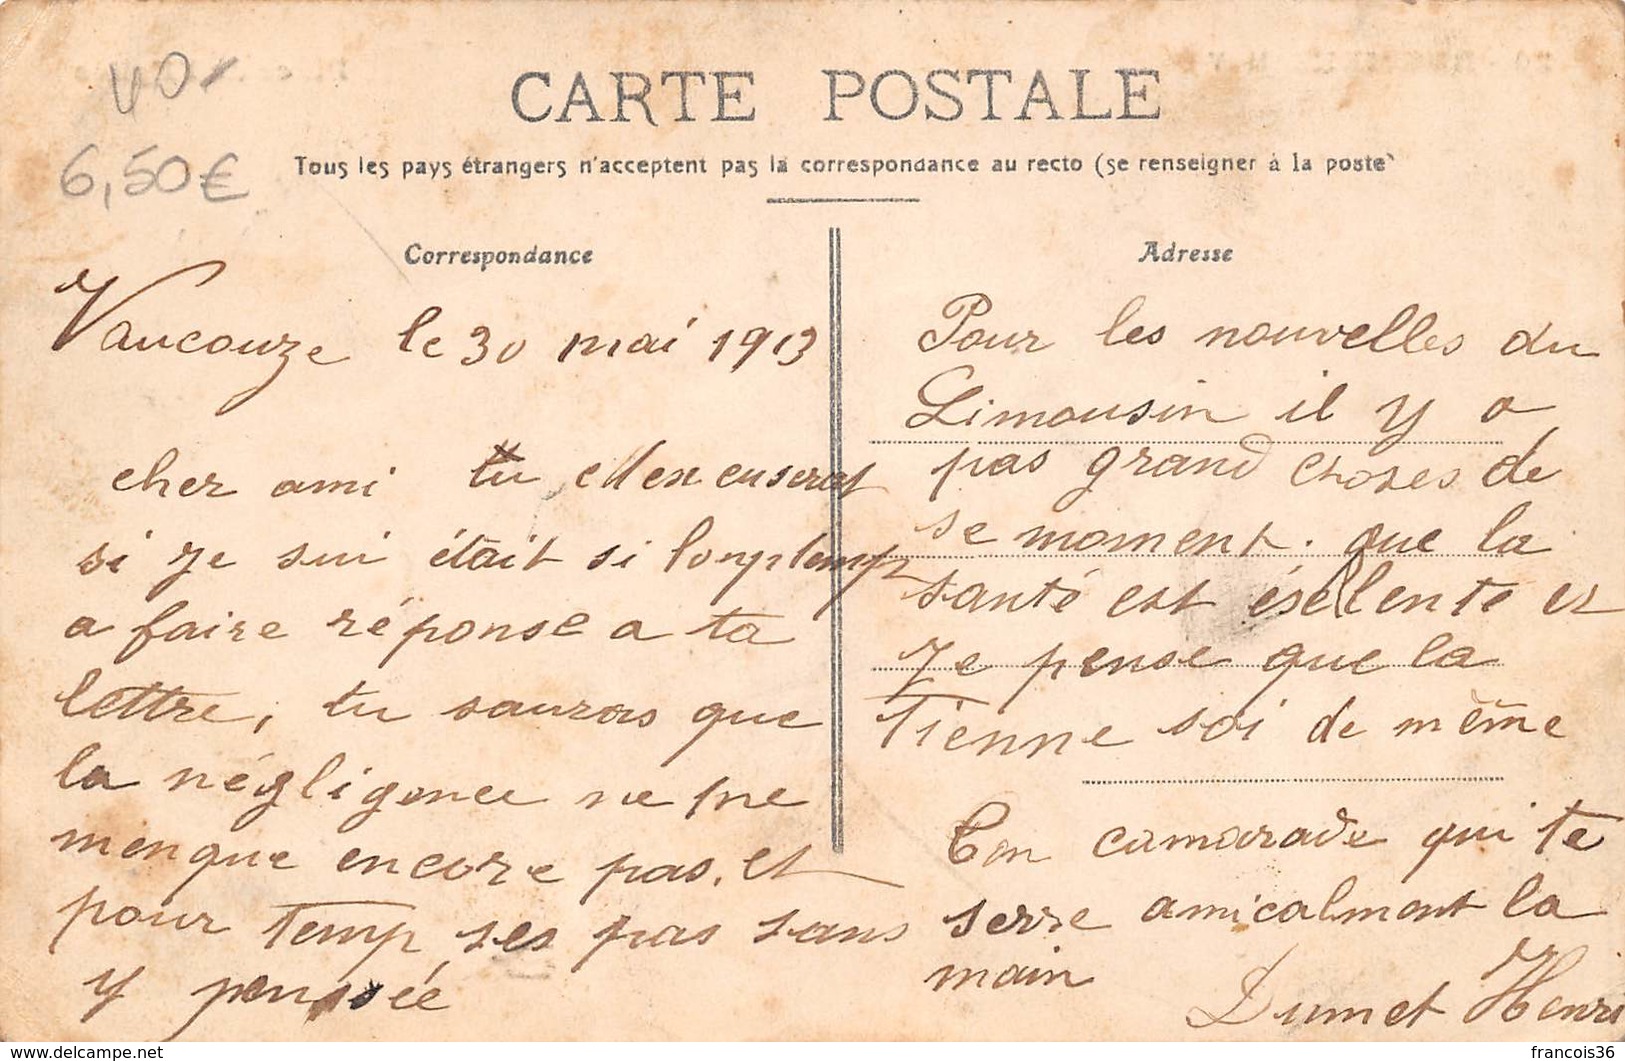 40
6,50€
CARTE POSTALE
Tous les pays étrangers n'acceptent pas la correspondance au recto (se renseigner à la poste)
Correspondance
Vaucouze le 30 mai 1913
cher ami tu
si je sui était si longtemp
a faire réponse a ta
lettre, tu sauras que
la négligence ne me
menque encore pas. et
pour temp ses pas sans
y pensée
Adresse
Pour les nouvelles du
Limousin il y a
pas grand choses de
se moment. que la
santé est éselente et
je pense que la
Tienne soi de même
Ton camarade qui te
serre amicalment la
main
Dumet Henri
www.delcampe.net
francois36